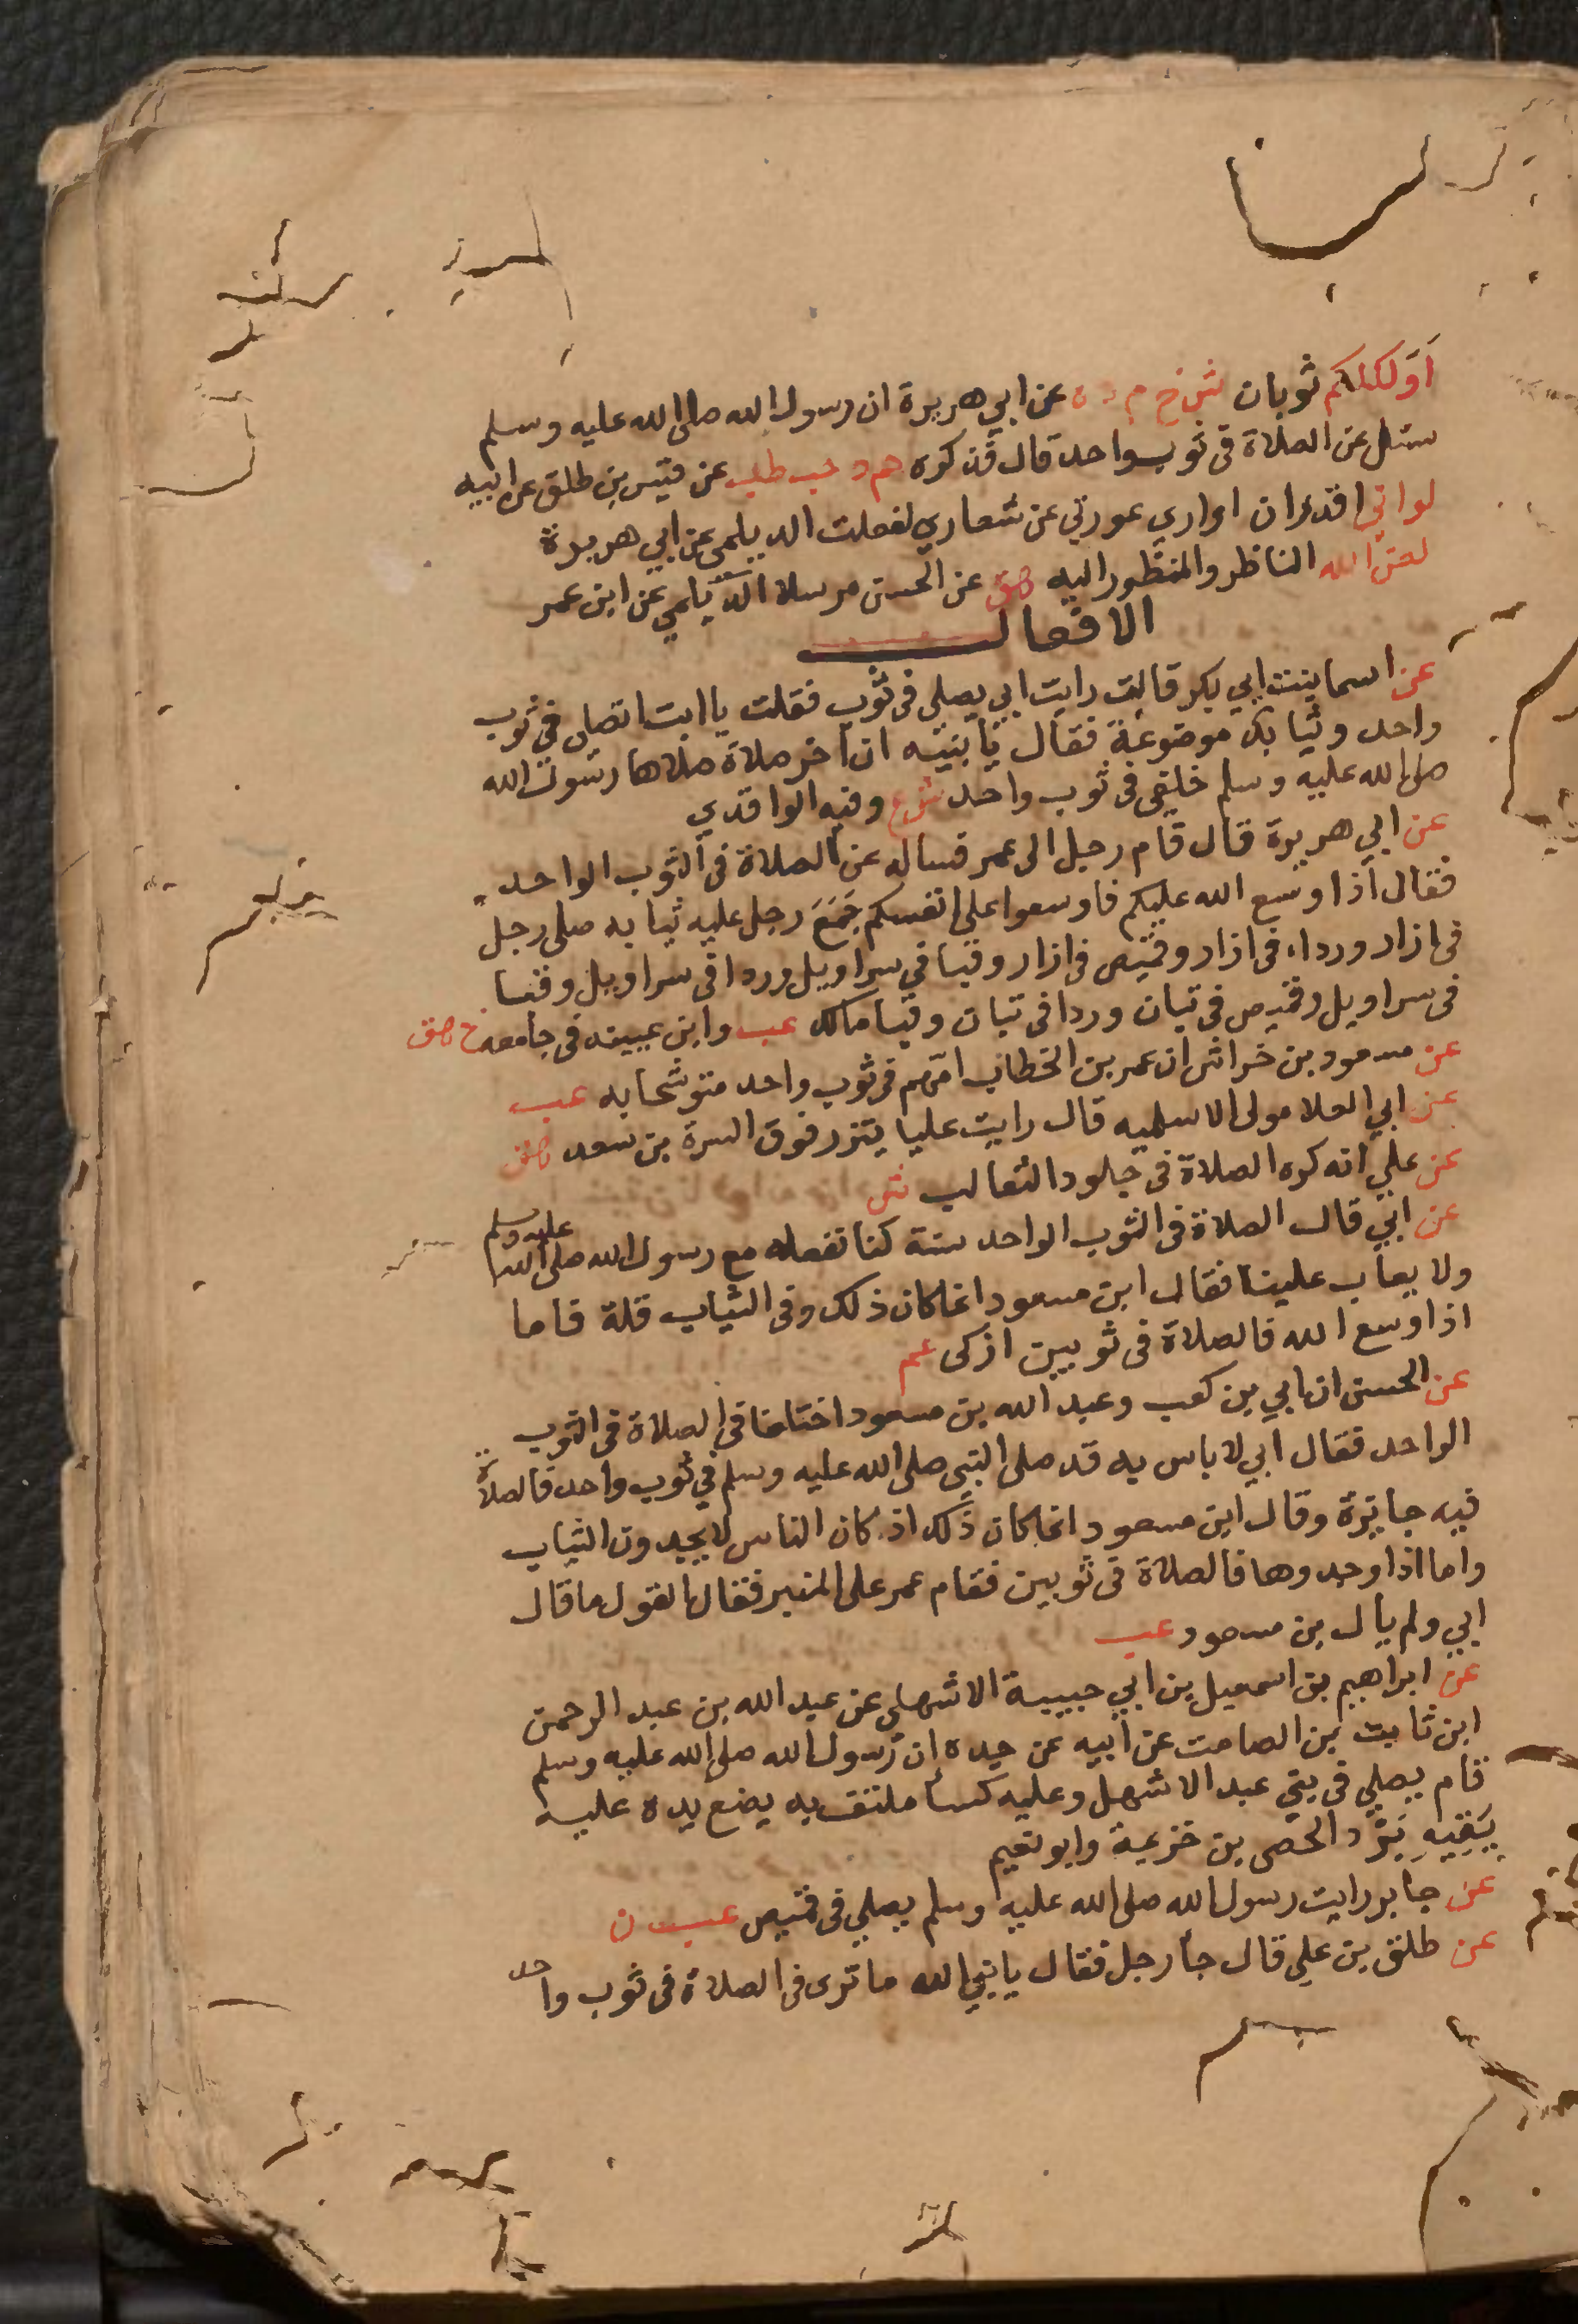 اَوَلكلكم ثوبان ش خ م د ه عن ابي هريرة ان رسول الله صلى الله عليه وسلم
سئل عن الصلاة في ثوب واحد قال فذكره هم د حب طب عن قيس بن طلق عن ابيه
لو اني اقدر ان اواري عورتي عن شعاري لفعلت الديلمي عن ابي هريرة
لعن الله الناظر والمنظور اليه هق عن الحسن مرسلا الديلمي عن ابن عمر
الافعال
عن اسما بنت ابي بكر قالت رايت ابي يصلي في ثوب فقلت يا ابت اتصلي في ثوب
واحد وثيابك موضوعة فقال يا بنيه ان اخر صلاة صلاها رسول الله
صلى الله عليه وسلم خلفي في ثوب واحد ش ع وفيه الواقدي
عن ابي هريرة قال قام رجل الى عمر فساله عن الصلاة في الثوب الواحد
فقال اذا وسع الله عليكم فاوسعوا على انفسكم جَمَعَ رجل عليه ثيابه صلى رجل
في ازار ورداء في ازار وقميص في ازار وقبا في سراويل وردا في سراويل وقبا
في سراويل وقميص في تبان وردا في تبان وقبا مالك عب وابن عيينه في جامعه خ هق
عن مسعود بن خراش ان عمر بن الخطاب امّهم في ثوب واحد متوشحا به عب
عن ابي العلا مولى الاسلميه قال رايت عليا يتزر فوق السرة بن سعد هق
عن علي انه كره الصلاة في جلود الثعالب ش
عن ابيّ قال الصلاة في الثوب الواحد سنة كنا نفعله مع رسول الله صلى الله عليه وسلم
ولا يعاب علينا فقال ابن مسعود انما كان ذلك وفي الثياب قلة فاما
اذا وسع الله فالصلاة في ثوبين ازكى عم
عن الحسن ان ابي بن كعب وعبد الله بن مسعود اختلفا في الصلاة في الثوب
الواحد فقال ابي لا باس به قد صلى النبي صلى الله عليه وسلم في ثوب واحد فالصلاة
فيه جايزة وقال ابن مسعود انما كان ذلك اذ كان الناس لا يجدون الثياب
واما اذا وجدوها فالصلاة في ثوبين فقام عمر على المنبر فقال القول ما قال
ابي ولم يأل بن مسعود عب
عن ابراهيم بن اسمعيل بن ابي حبيبة الاشهلي عن عبد الله بن عبد الرحمن
ابن ثابت بن الصامت عن ابيه عن جده ان رسول الله صلى الله عليه وسلم
قام يصلي في بني عبد الاشهل وعليه كسأ ملتف به يضع يده عليه
يَقِيهِ بَرْد الحصى بن خزيمة وابو نعيم
عن جابر رايت رسول الله صلى الله عليه وسلم يصلي في قميص عب ن
عن طلق بن علي قال جأ رجل فقال يا نبي الله ما ترى في الصلاة في ثوب واحد